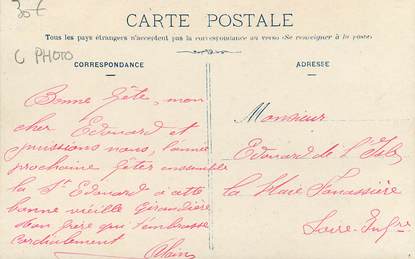 30€
C PHOTO
CARTE POSTALE
Tous les pays étrangers n'acceptent pas la correspondance au verso (Se renseigner à la poste)
CORRESPONDANCE
Bonne fête, mon
cher Edouard et
puissions nous, l'année
prochaine fêter ensemble
la St Edouard à cette
bonne vieille Girandière
ton frère qui t'embrasse
cordialement
Alain
ADRESSE
Monsieur
Edouard de l'Isle
la Place
Loire-Infre